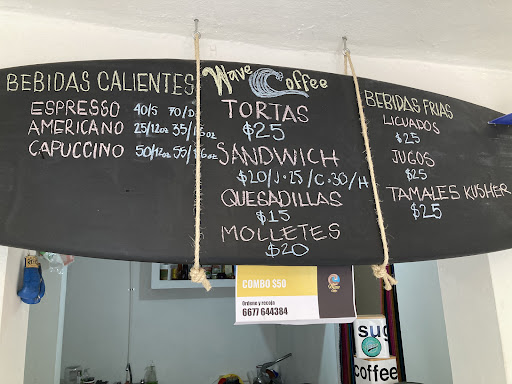 BEBIDAS CALIENTES
ESPRESSO 40/S 70/D
AMERICANO 25/12oz 35/16oz
CAPUCCINO 50/12oz 55/16oz
Wave Coffee
TORTAS
$25
SANDWICH
$20/J·25/C·30/H
QUESADILLAS
$15
MOLLETES
$20
BEBIDAS FRIAS
LICUADOS
$25
JUGOS
$25
TAMALES KUSHER
$25
COMBO $50
Ordene y recoja
6677 644384
sug
coffee